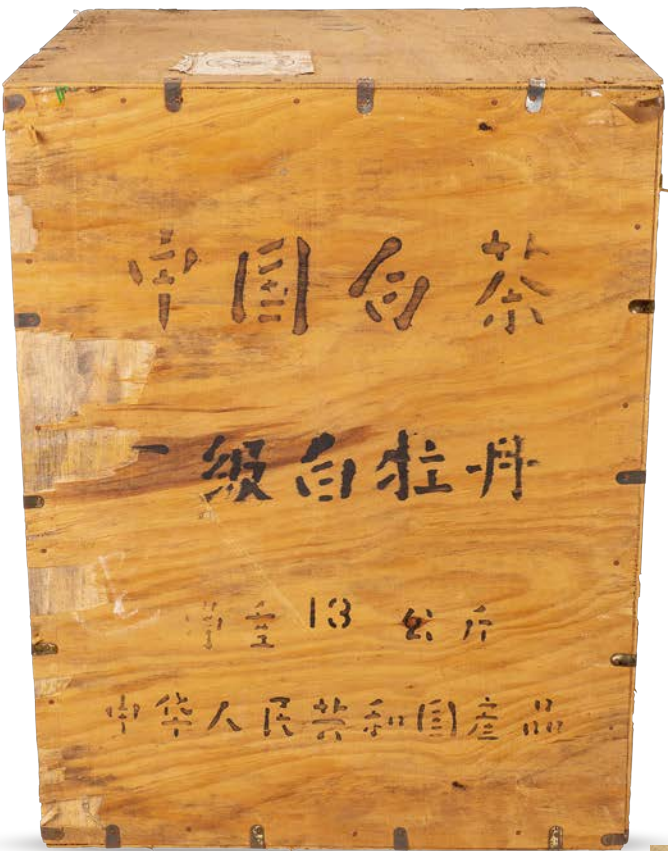 中国白茶
一級白牡丹
净重 13 公斤
中华人民共和国産品